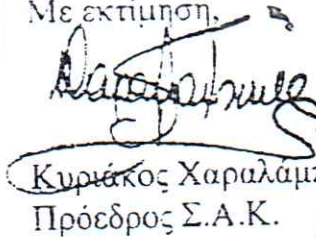 Με εκτίμηση,
Κυριάκος
Πρόεδρος Σ.Α.Κ.